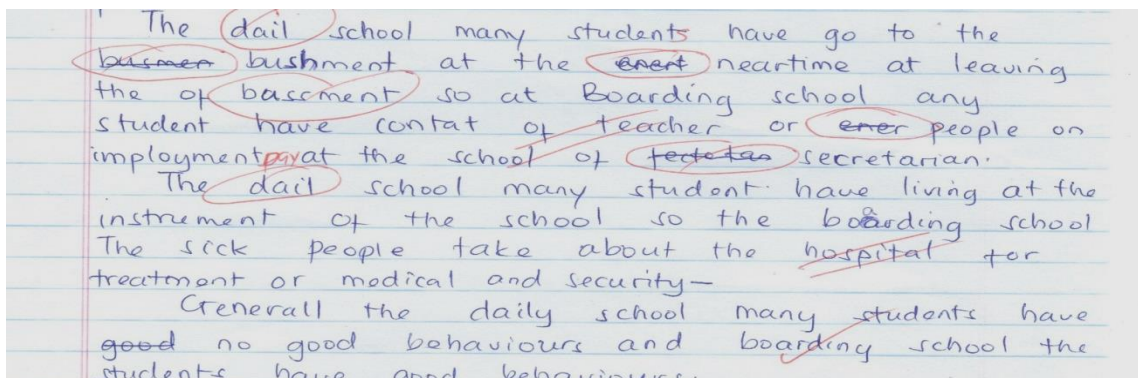 The dail school many students have go to the
busmen bushment at the enert neartime at leaving
the of bassment so at Boarding school any
student have contat of teacher or ener people on
imploymentpayat the school of secretarian.
The dail school many student have living at the
instrument of the school so the boarding school
The sick people take about the hospital for
treatment or medical and security-
Generall the daily school many students have
good no good behaviours and boarding school the
students have good behaviours.